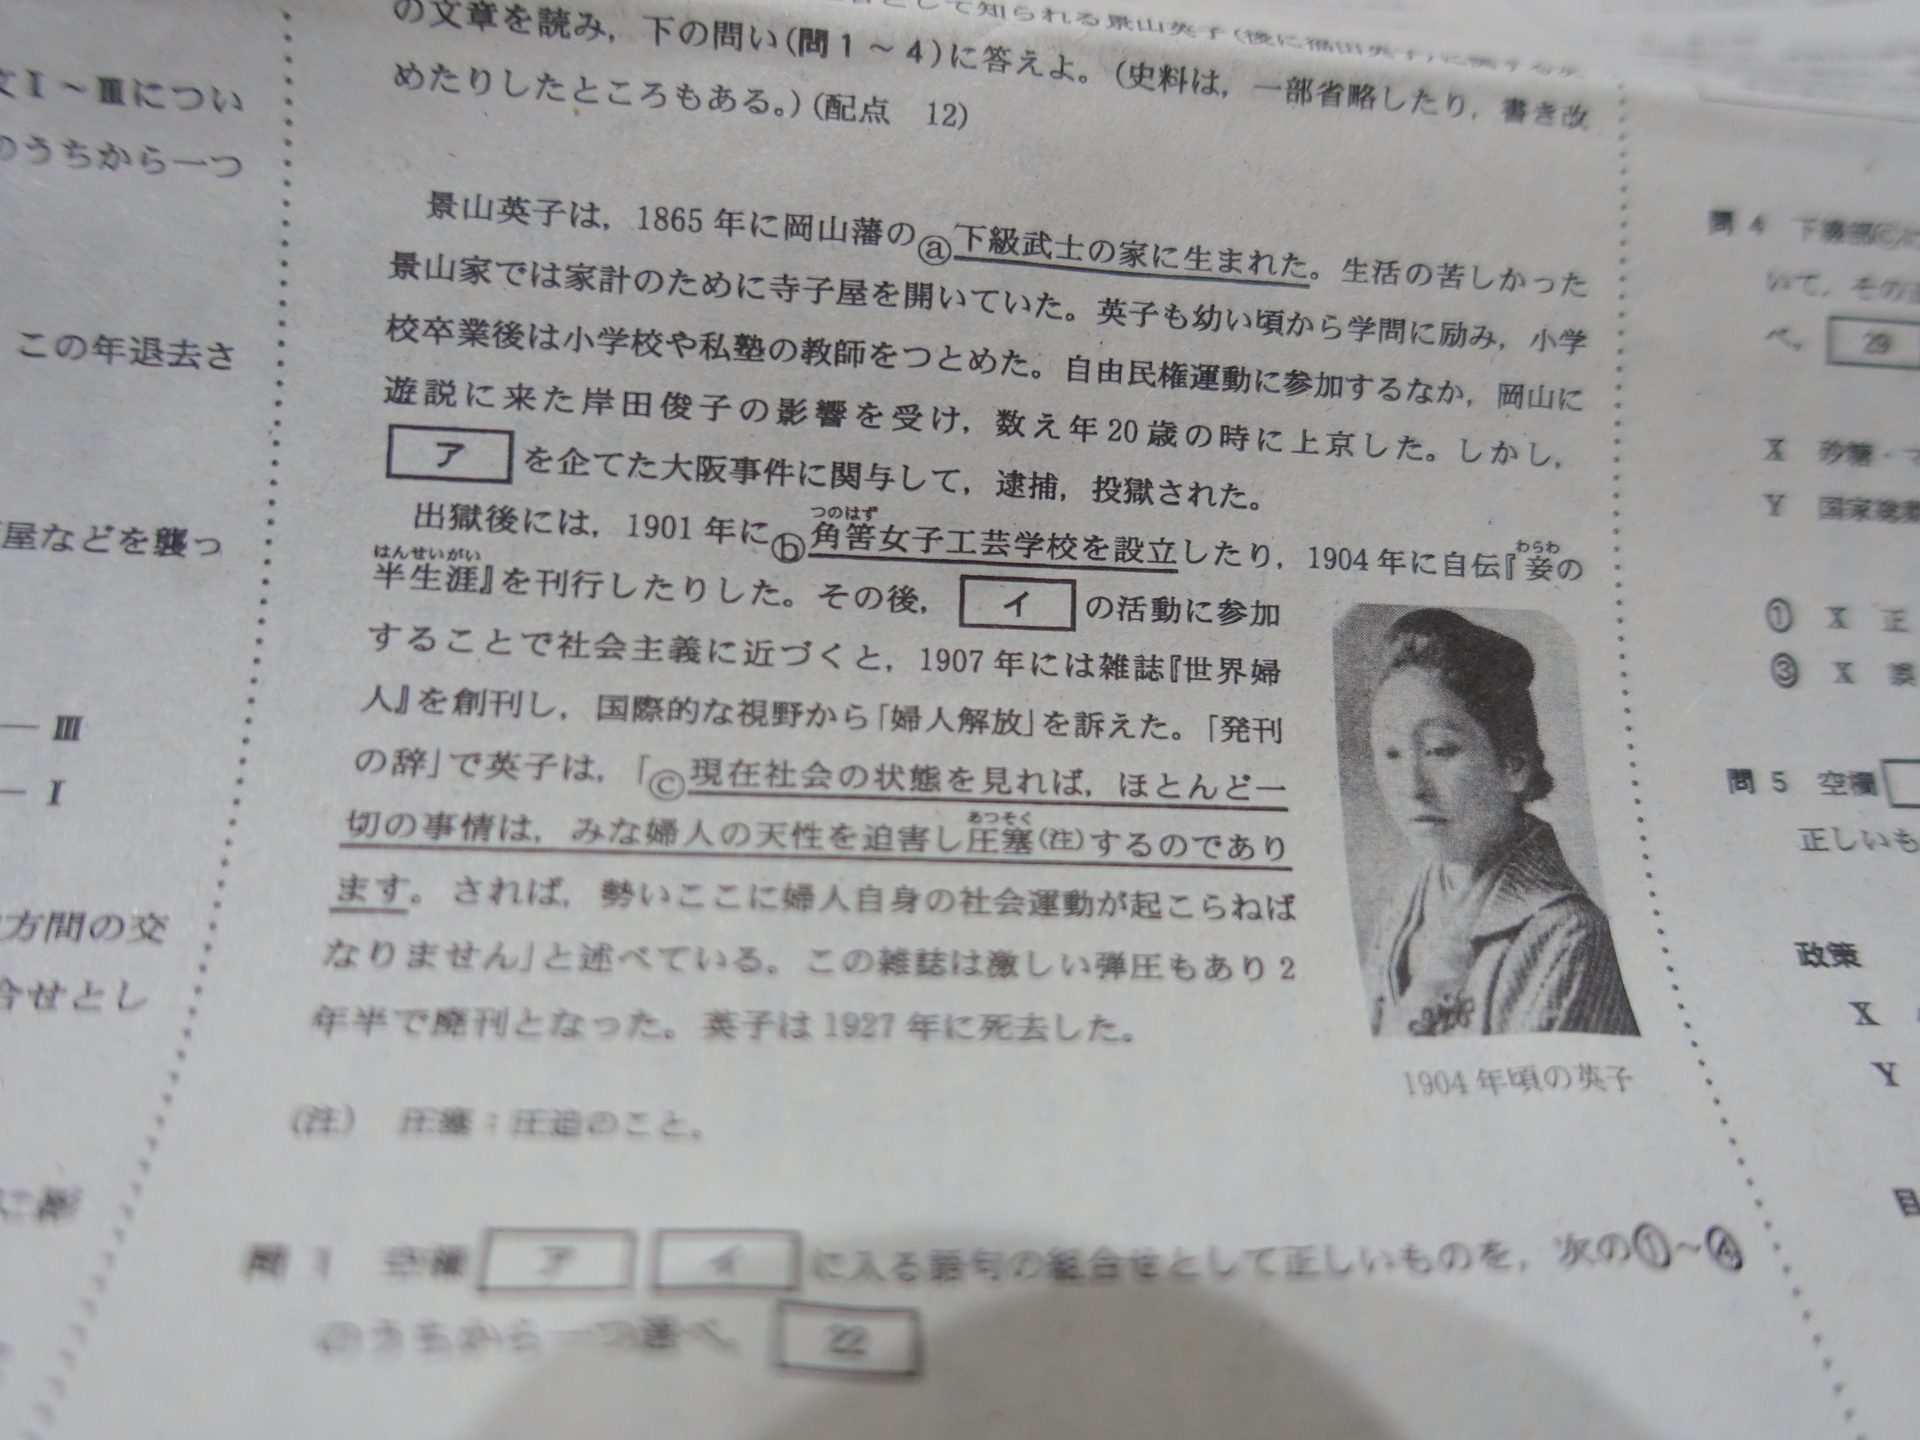 として知られる景山英子(後に福田英子)に関する次
の文章を読み，下の問い(問1～4)に答えよ。(史料は，一部省略したり，書き改
めたりしたところもある。)(配点　12)
景山英子は，1865年に岡山藩のⓐ下級武士の家に生まれた。生活の苦しかった
景山家では家計のために寺子屋を開いていた。英子も幼い頃から学問に励み，小学
校卒業後は小学校や私塾の教師をつとめた。自由民権運動に参加するなか，岡山に
遊説に来た岸田俊子の影響を受け，数え年20歳の時に上京した。しかし，
ア を企てた大阪事件に関与して，逮捕，投獄された。
つのはず
出獄後には，1901年にⓑ角筈女子工芸学校を設立したり，1904年に自伝『妾の
わらわ
はんせいがい
半生涯』を刊行したりした。その後， イ の活動に参加
することで社会主義に近づくと，1907年には雑誌『世界婦
人』を創刊し，国際的な視野から「婦人解放」を訴えた。「発刊
の辞」で英子は，「ⓒ現在社会の状態を見れば，ほとんど一
あつそく
切の事情は，みな婦人の天性を迫害し圧塞(注)するのであり
ます。されば，勢いここに婦人自身の社会運動が起こらねば
なりません」と述べている。この雑誌は激しい弾圧もあり2
年半で廃刊となった。英子は1927年に死去した。
1904年頃の英子
(注)　圧塞：圧迫のこと。
問1　空欄 ア イ に入る語句の組合せとして正しいものを，次の①～④
のうちから一つ選べ。 22
文Ⅰ～Ⅲについ
のうちから一つ
この年退去さ
屋などを襲っ
― Ⅲ
― Ⅰ
方間の交
合せとし
問4　下線部ⓒ
いて，その正
べ。 29
X　砂糖・マ
Y　国家総動
①　X　正
③　X　誤
問5　空欄
正しいも
政策
X
Y
目